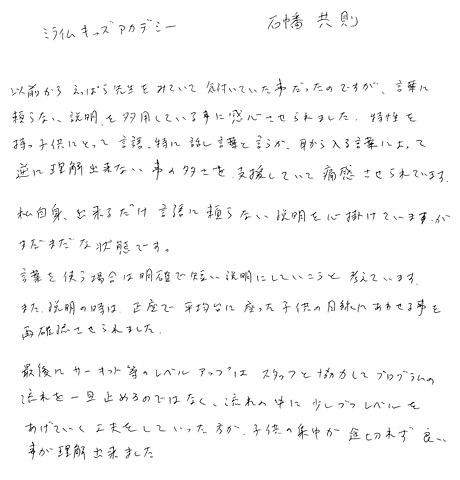 ミライム キッズ アカデミー
石幡 共則
以前から えばら先生をみていて 気付いていた事だったのですが、言葉に
頼らない 説明を多用している事に感心させられました。特性を
持つ子供にとって 言語、特に 話し言葉と言うか、耳から入る言葉によって
逆に理解出来ない 事の多さを、支援していて 痛感 させられています。
私自身、出来るだけ 言語に頼らない 説明を心掛けていますが
まだまだ な状態です。
言葉を使う場合は明確で短い説明にしていこうと 考えています。
また、説明の時は、正座で 平均台に座った子供の目線にあわせる事を
再確認させられました。
最後に サーキット等のレベルアップは スタッフと協力してプログラムの
流れを一旦止めるのではなく、流れの中に少しづつ レベルを
あげていく工夫をしていった方が、子供の集中が 途切れず 良い
事が理解出来ました